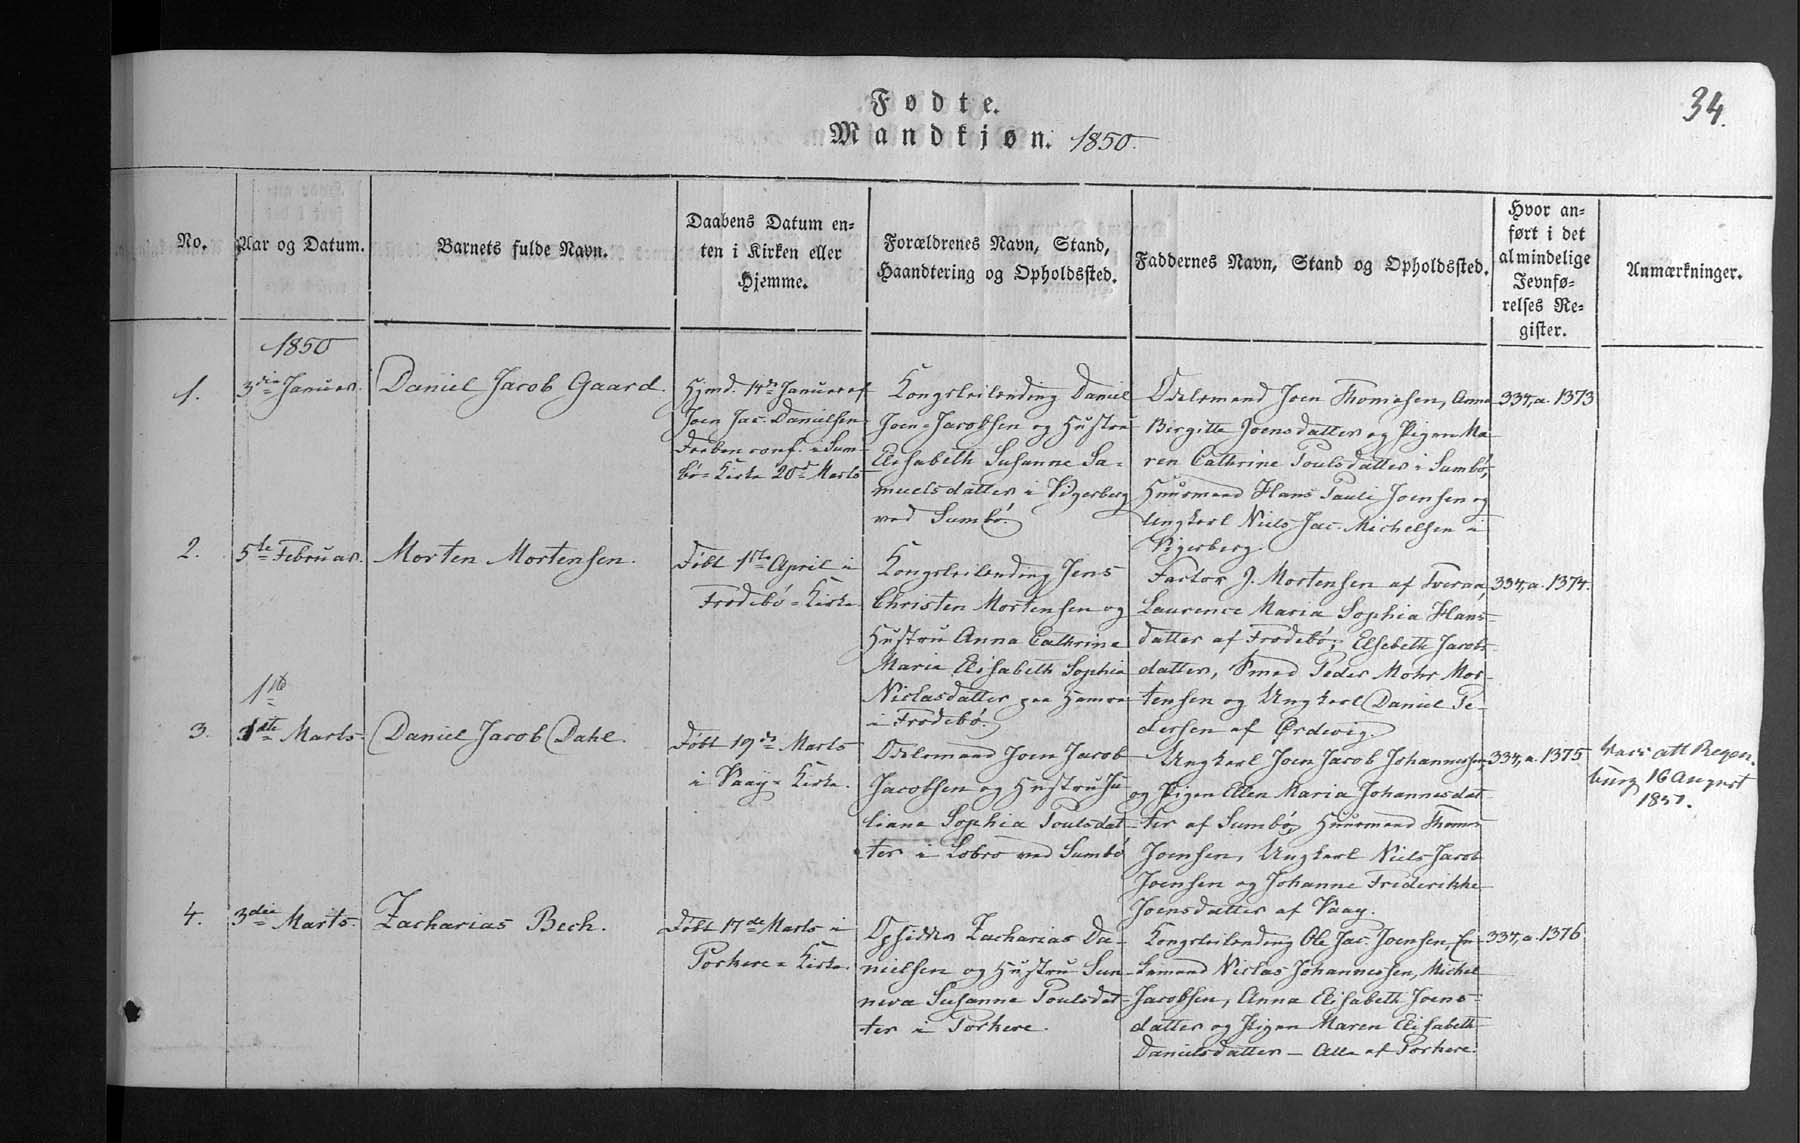 34.
Fødte.
Mandkjøn. 1850.
No.
Aar og Datum.
Barnets fulde Navn.
Daabens Datum en=
ten i Kirken eller
Hjemme.
Forældrenes Navn, Stand,
Haandtering og Opholdssted.
Faddernes Navn, Stand og Opholdssted.
Hvor an=
ført i det
almindelige
Jevnfø=
relses Re=
gister.
Anmærkninger.
1850
1.
3die Januar.
Daniel Jacob Gaard.
Hjmd. 14de Januar af
Joen Jac. Danielsen
Daaben conf. i Sum-
bø=Kirke 20de Marts
Kongsleilending Daniel
Joen=Jacobsen og Hustru
Elisabeth Susanne Sa=
muelsdatter i Vigerberg
ved Sumbø.
Odelsmand Joen Thomesen, Anna
Birgitte Joensdatter og Pigen Ma-
ren Cathrine Poulsdatter i Sumbø,
Huusmand Hans Pauli Joensen og
Ungkarl Niels Jac. Michelsen i
Vigerberg
334, a. 1373
2.
5te Februar.
Morten Mortensen.
Døbt 1ste April i
Frodebø=Kirke
Kongsleilending Jens
Christen Mortensen og
Hustru Anna Cathrine
Maria Elisabeth Sophia
Niclasdatter paa
i Frodebø.
Factor J. Mortensen af Tveraa,
Laurence Maria Sophia Hans-
datter af Frodebø, Elsebeth Jacobs-
datter, Smed Peder Mohr Mor-
tensen og Ungkarl Daniel Pe-
dersen af Ørdevig.
334, a. 1374.
3.
1ste
1ste Marts.
Daniel Jacob Dahl.
Døbt 19de Marts
i Vaag=Kirke.
Odelsmand Joen Jacob
Jacobsen og Hustru Ju-
liane Sophia Poulsdat-
ter i Lobro ved Sumbø
Ungkarl Joen Jacob Johannessen
og Pigen Ellen Maria Johannesdat-
ter af Sumbø, Huusmand Thomas
Joensen, Ungkarl Niels Jacob
Joensen og Johanne Frederikke
Joensdatter af Vaag.
334, a. 1375
16 August
4.
3die Marts.
Zacharias Bech.
Døbt 17de Marts i
Porkere=Kirke.
Opsidder Zacharias Da-
nielsen og Hustru Sun-
neva Susanne Poulsdat-
ter i Porkere.
Kongsleilending Ole Jac. Joensen, En-
kemand Niclas Johannessen, Michel
Jacobsen, Anna Elisabeth Joens-
datter og Pigen Maren Elisabeth
Danielsdatter — Alle af Porkere.
334, a. 1376